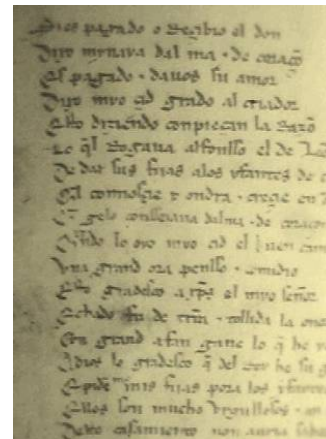 Dies pagado o reçibio el don
Dixo mynaya dalma ⁊ de coraço
Es pagado ⁊ davos su amor
Dixo myo çid grado al criador
Esto diziendo conpieçan la razo
Lo ql rogava alfonsso el de
De dar sus fijas a los yfantes de
Ql connosçie y ondra ⁊ creçie en
gelo consseiava dalma ⁊ de coraçon
lo oyo myo çid el buen cam
Vna grand ora pensso ⁊ comidio
Esto gradesco a xps el myo señor
Echado fu de tra ⁊ tollida la onor
Con grand afan gane lo q he
A dios lo gradesco q del rey he su g
E pide mis fijas pora los yfantes
Ellos son mucho vrgullosos ⁊ an
Deste casamiento non auria sabor